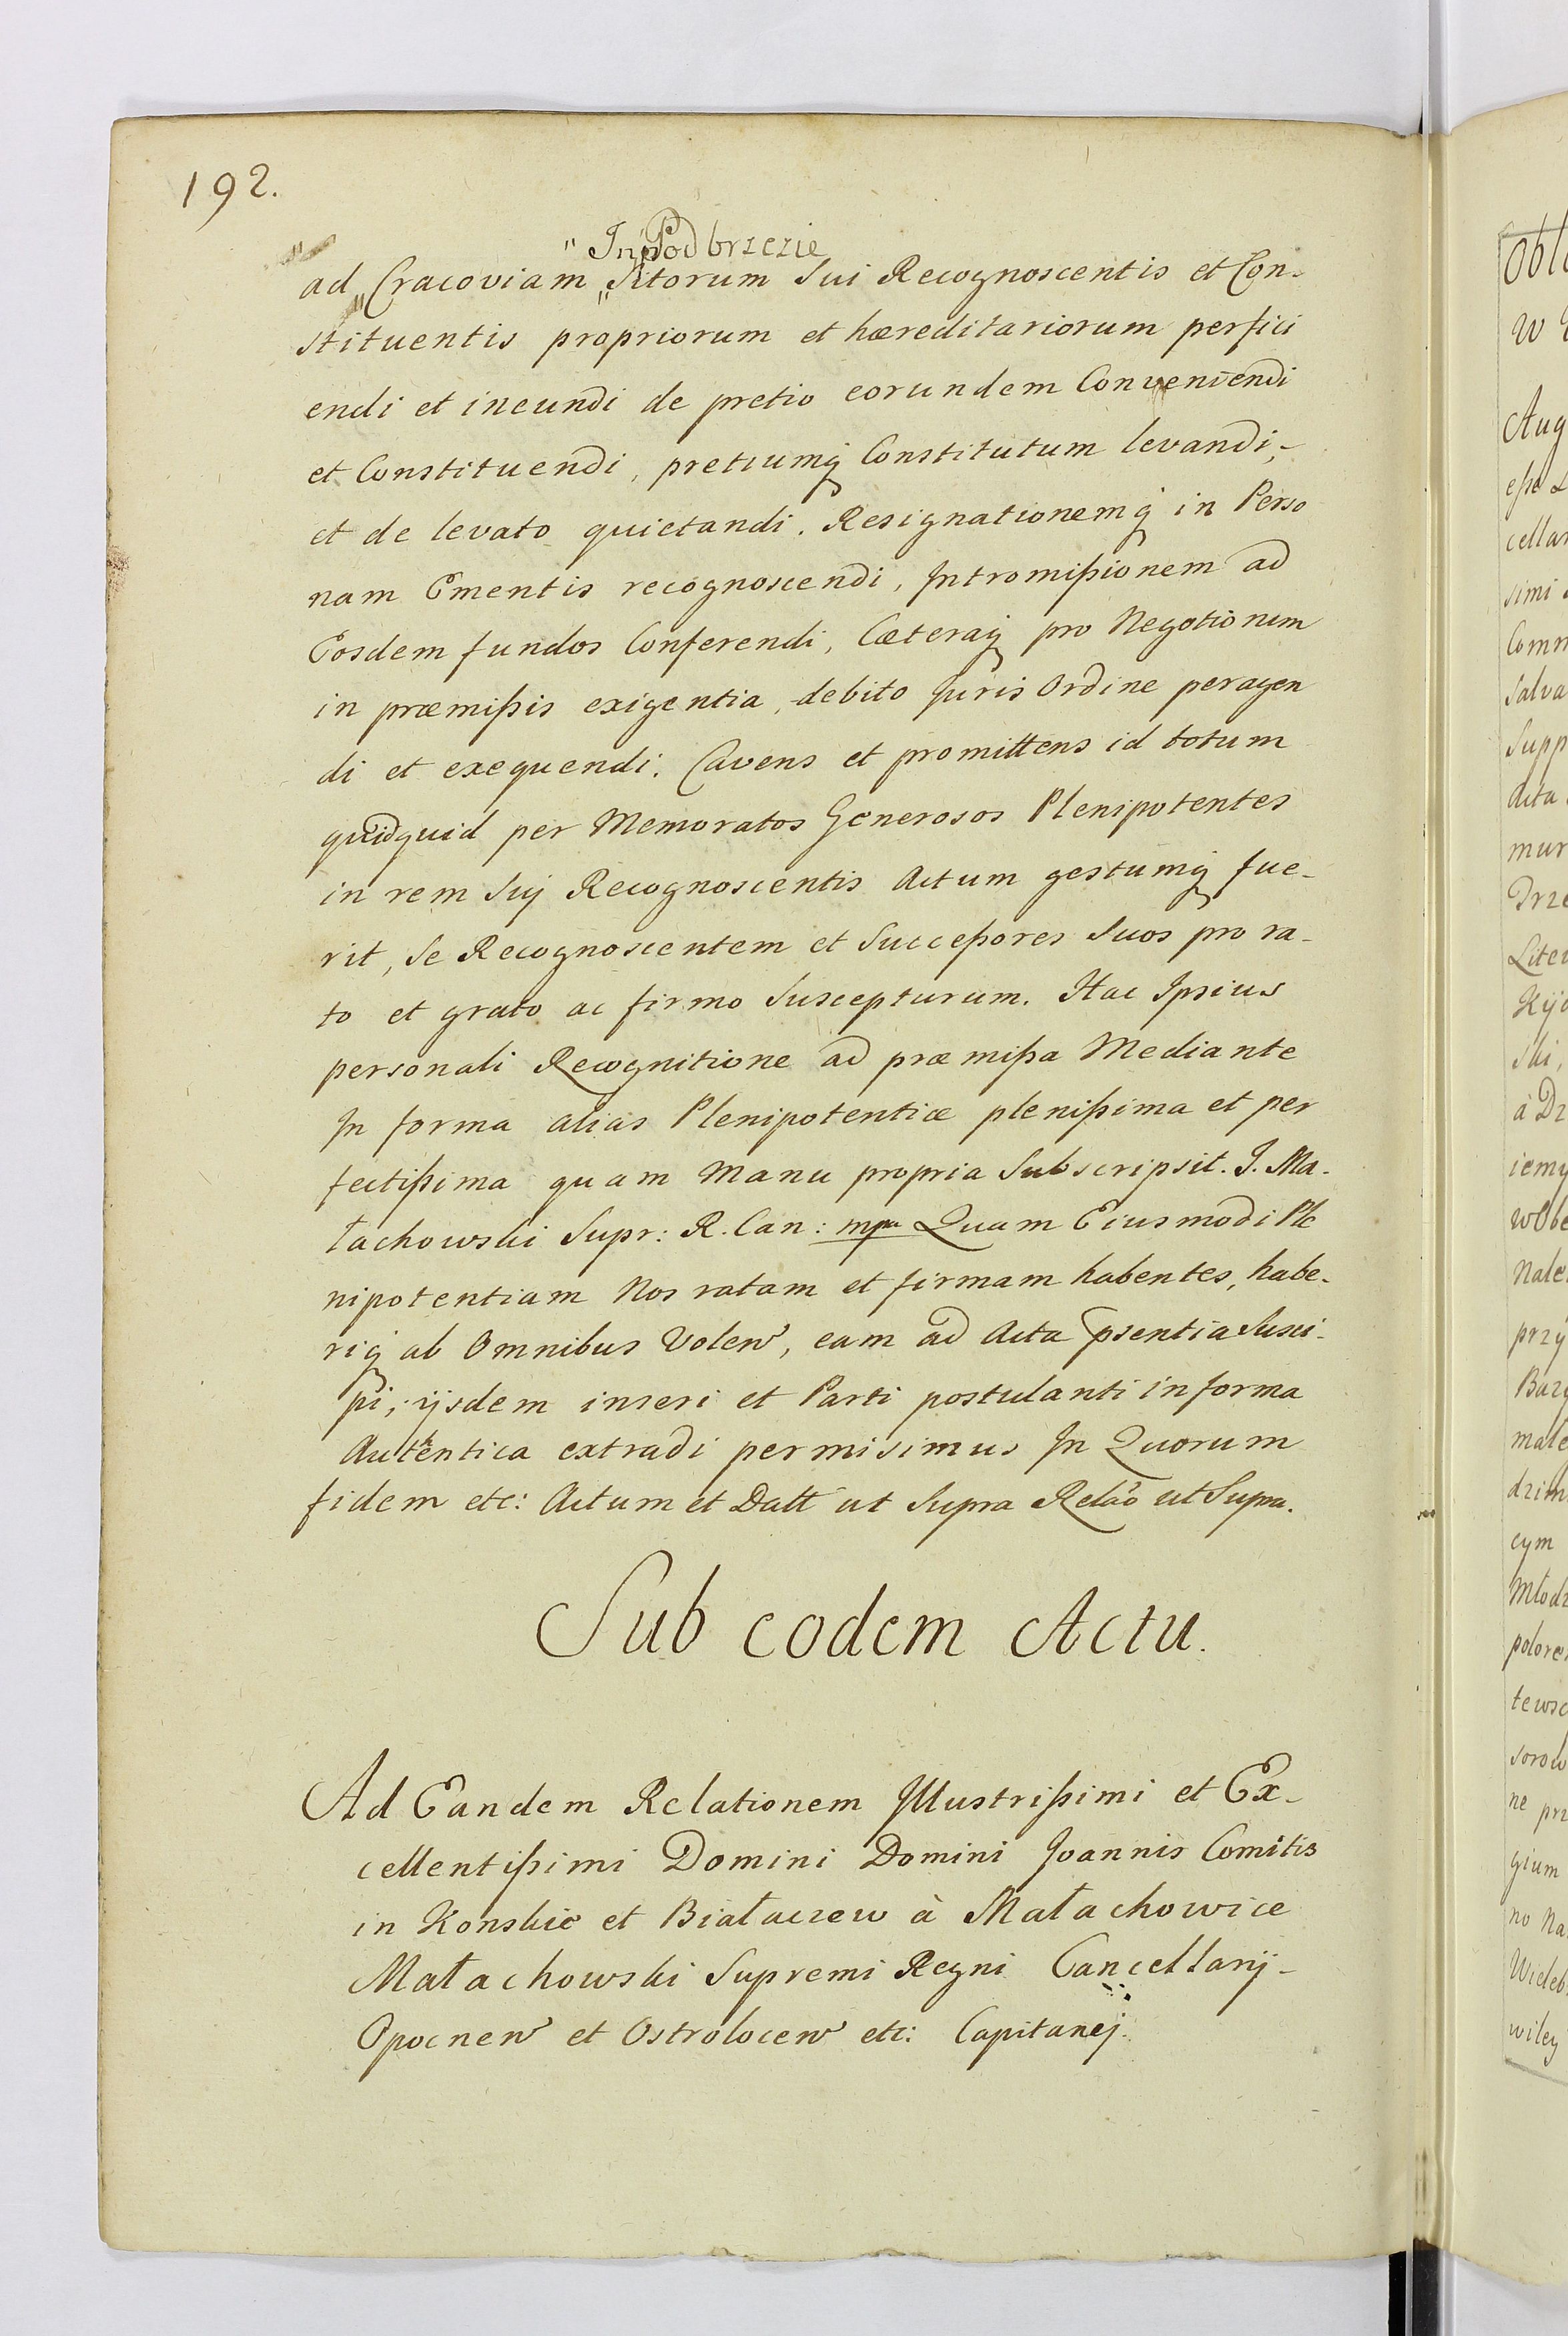 192.
" In Podbrzezie
ad Cracoviam " Sitorum Sui Recognoscentis et Con-
stituentis propriorum et hæreditariorum perfici
endi et ineundi de pretio eorundem Conveniendi
et Constituendi, pretiumq́ Constitutum levandi,-
et de levato quietandi. Resignationemq́ in Perso
nam Ementis recognoscendi, Intromißionem ad
Eosdem fundos Conferendi, Cæteraq́ pro Negotiorum
in præmißis exigentia, debito Juris Ordine peragen
di et exequendi. Cavens et promittens id totum
quidquid per Memoratos Generosos Plenipotentes
in rem Sui Recognoscentis Actum gestumq́ fue-
rit, Se Recognoscentem et Succeßores Suos pro ra-
to et grato ac firmo Suscepturum. Hac Ipsius
personali Recognitione ad præmißa Mediante
In forma alias Plenipotentiæ plenißima et per
fectißima quam Manu propria Subscripsit. J. Ma-
łachowski Supr: R. Can: mpa Quam Eiusmodi Ple
nipotentiam Nos ratam et firmam habentes, habe-
riq́ ab Omnibus Volen̄, eam ad Acta p̄sentia Susci-
pi, ijsdem inseri et Parti postulanti in forma
Autentica extradi permisimus In Quorum
fidem etc: Actum et Datt ut Supra Relaõ ut Supra.
Sub eodem Actu.
Ad Eandem Relationem Illustrißimi et Ex-
cellentißimi Domini Domini Joannis Comitis
in Konskie et Białaczew à Małachowice
Małachowski Supremi Regni Cancellarij-
Opocnen̄ et Ostrolocen̄ etc: Capitanej.
Oblo
w
Aug
eße
cellar
simi
Comm
Salva
Supp
Acta
mur
Drze
Liter
Kijo
ski,
à Dz
iemy
wObe
Nale
przy
Bazy
male
dzim
cym
Młodz
polore
tewsc
sorow
ne prz
gium
no Na
Wieleb
wiley